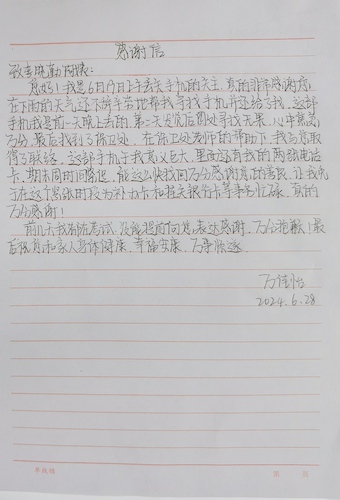 感谢信
敬爱的    阿姨:
您好!我是6月19日上午丢失手机的失主,真的非常感谢您
在下雨的天气还不辞辛苦地帮我寻找手机并还给了我,这部
手机我是前一天晚上丢的,第二天发现后四处寻找无果,心中焦急
万分,最后找到了保卫处,在保卫处老师的帮助下,我与您取
得了联络,这部手机于我意义巨大,里面还有我的两张电话
卡,期末周时间紧迫,能这么快找回万分感谢您的善良,让我免
于在这个紧张时段为补办卡和相关银行卡等事务忙碌,真的
万分感谢!
前几天我都在考试,没能提前向您表达感谢,万分抱歉!最
后祝您和家人身体健康,幸福安康,万事胜意。
万佳怡
2024.6.28